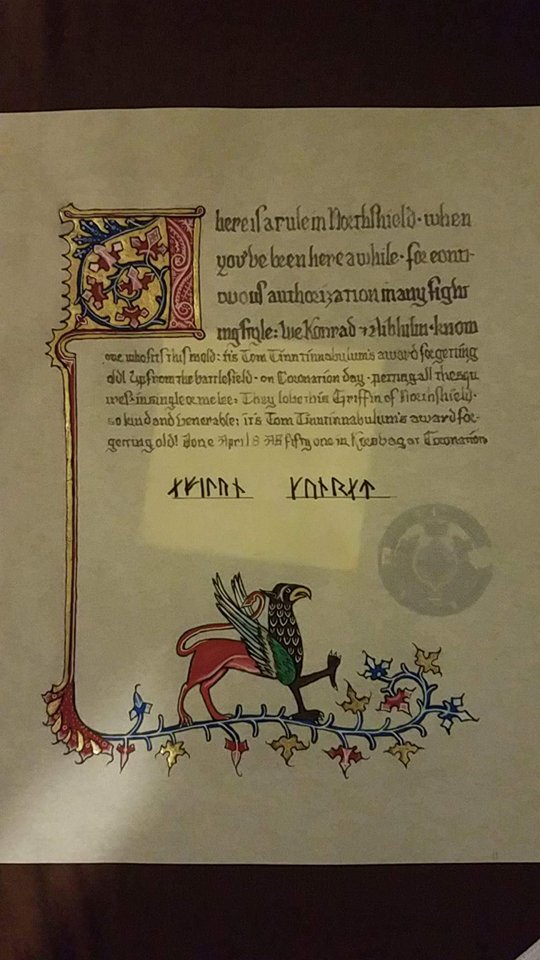 There is a rule in Northshield · when
you've been here a while · for conti-
nuous authorization in any fight
ing style: We Konrad & know
one who fits this mold: tis Tom Tinntinnabulum's award for getting
old! Up from the battlefield · on Coronation day · petting all the squ
ires in single or melee: They love this Griffin of Northshield ·
so kind and venerable: it's Tom Tinntinnabulum's award for-
getting old! Done April 8 AS fifty one in at Coronation
ᛅᚠᛁᛚᚢᚾ ᚴᚢᚾᚱᛅᛏ